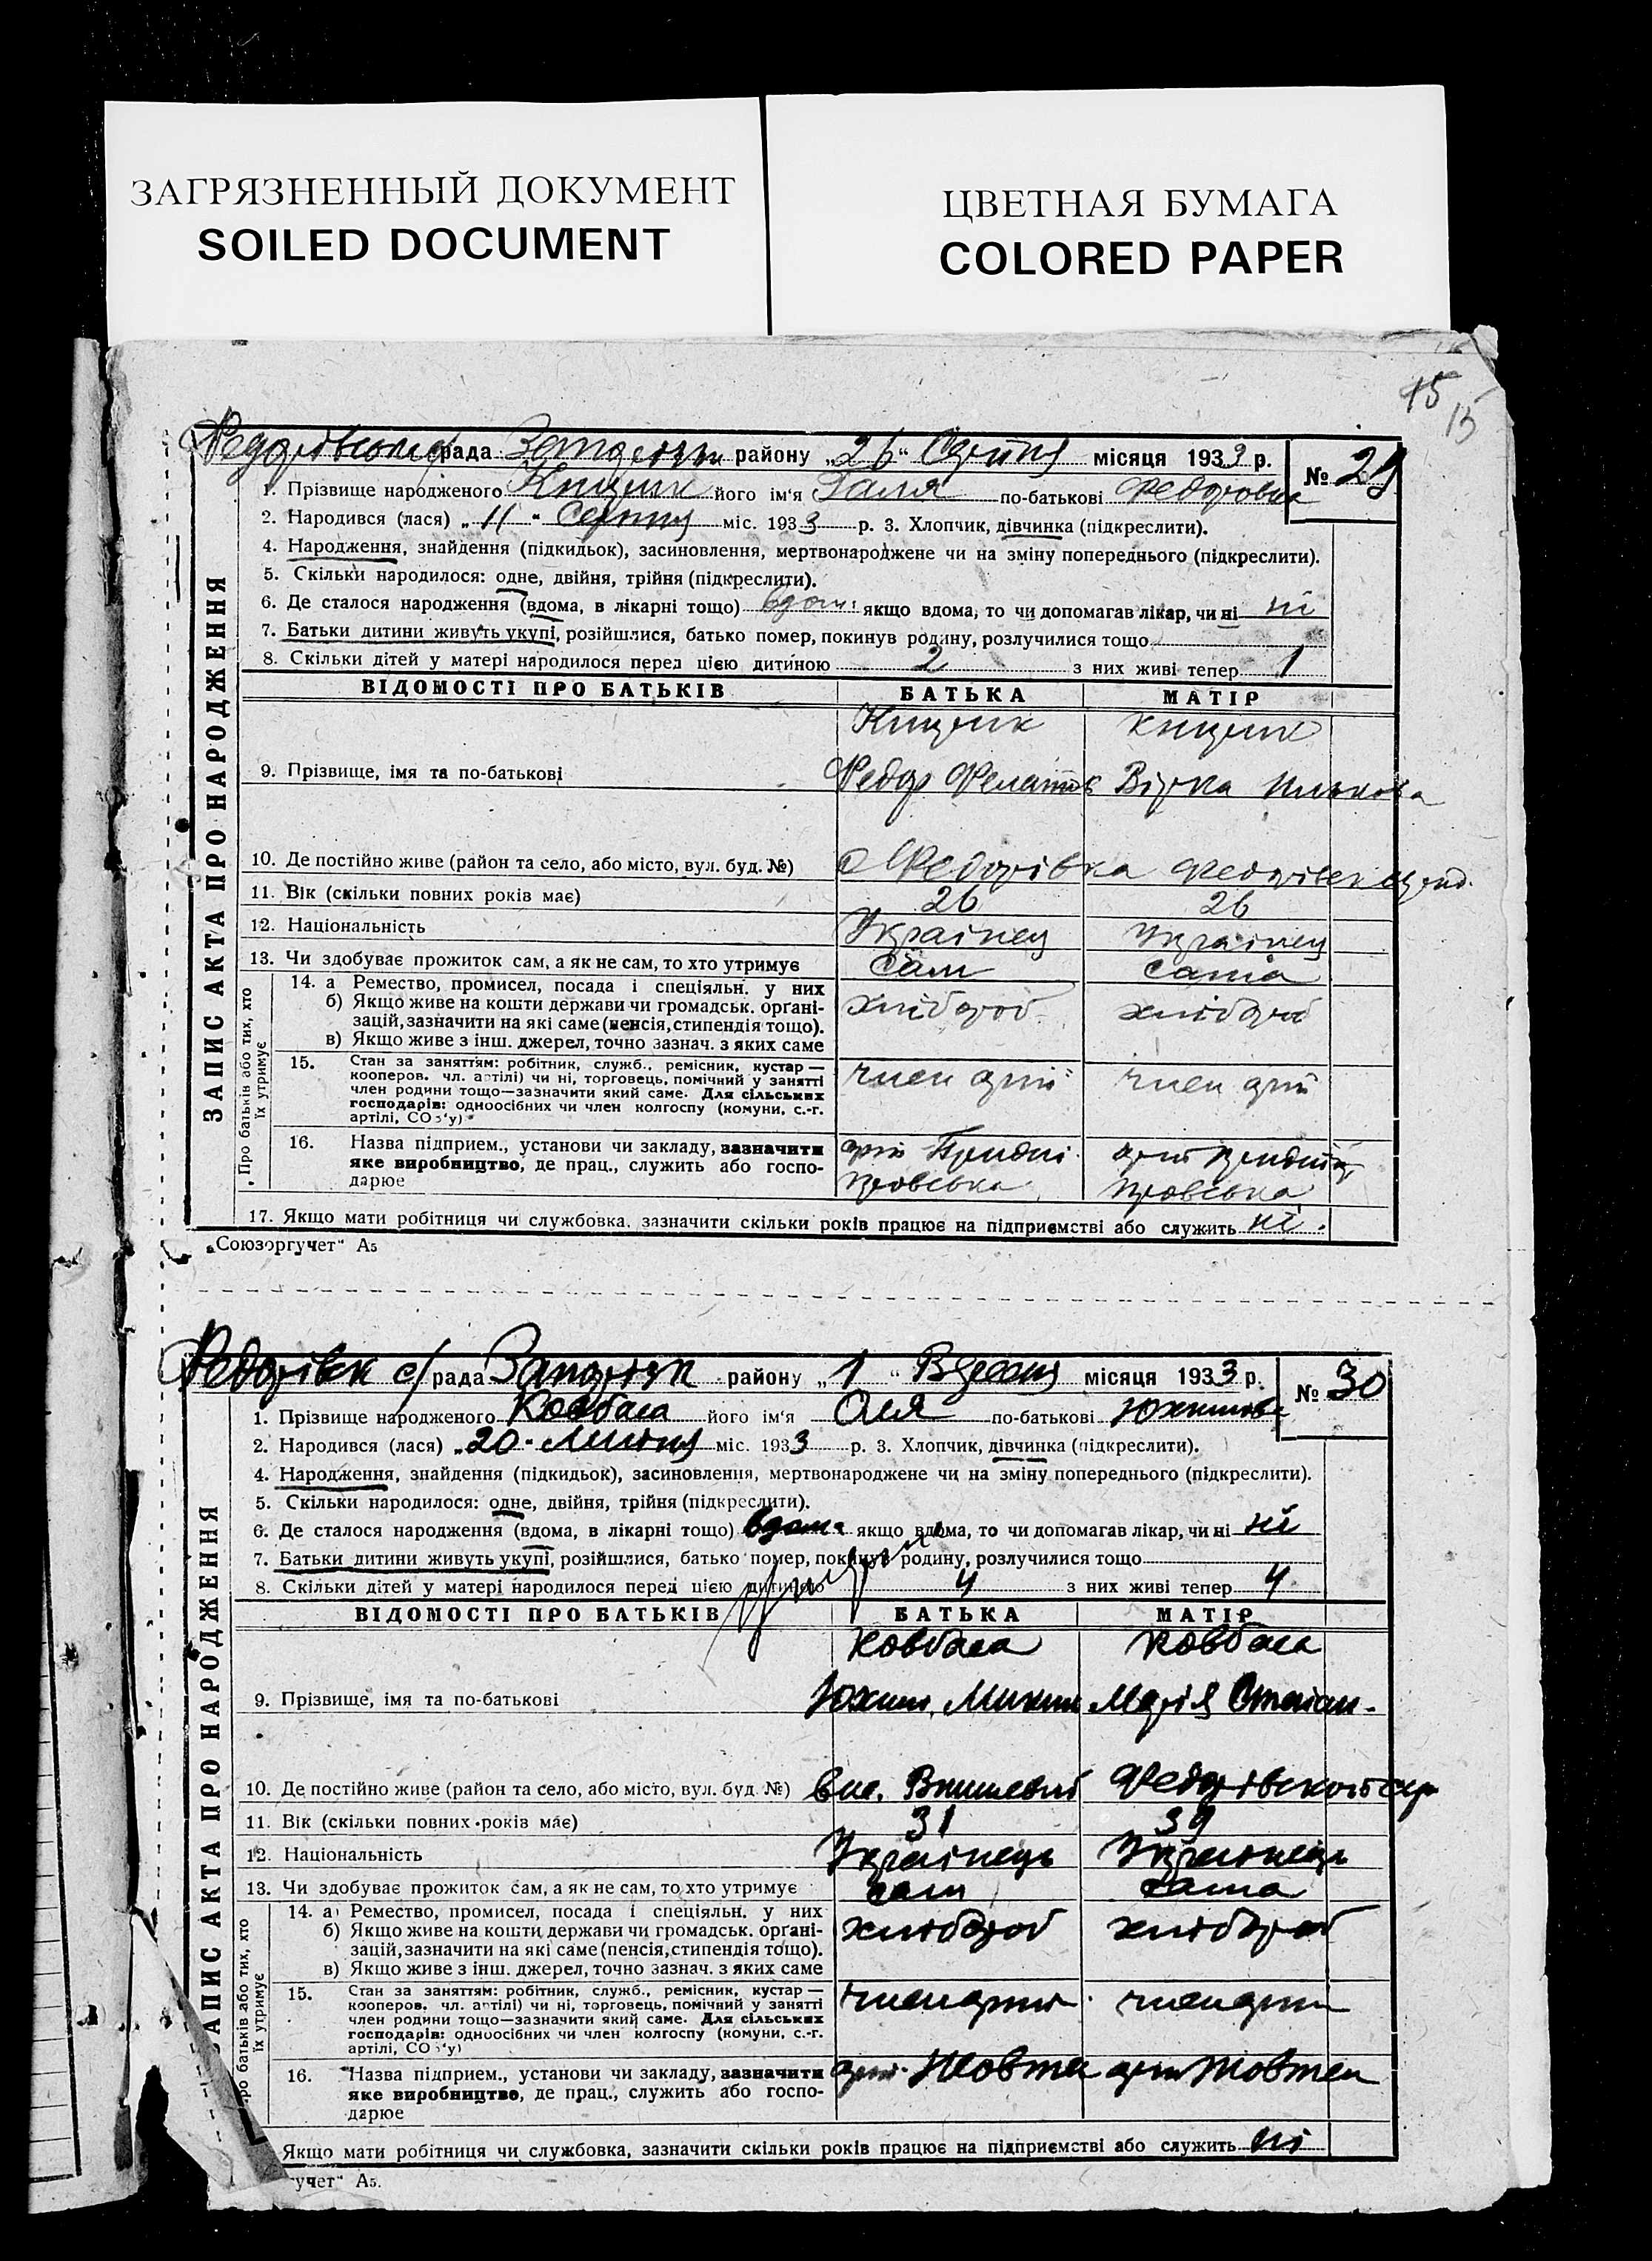 ЗАГРЯЗНЕННЫЙ ДОКУМЕНТ
SOILED DOCUMENT
ЦВЕТНАЯ БУМАГА
COLORED PAPER
15
15
рада района „26“ Серпня місяця 1933 р. № 29
1. Прізвище народженого Кищик його ім‘я Галя по-батькові Федоровна
2. Народився (лася) „11“ Серпня міс. 1933 р. 3. Хлопчик, дівчинка (підкреслити).
4. Народження, знайдення (підкидьок), засиновлення, мертвонароджене чи на зміну попереднього (підкреслити).
5. Скільки народилося: одне, двійня, трійня (підкреслити).
6. Де сталося народження (вдома, в лікарні тощо) вдома якщо вдома, то чи допомагав лікар, чи ні ні
7. Батьки дитини живуть укупі, розійшлися, батько помер, покинув родину, розлучилися тощо
8. Скільки дітей у матері народилося перед цією дитиною 2 з них живі тепер 1
ВІДОМОСТІ ПРО БАТЬКІВ БАТЬКА МАТІР
Кищик Кищик
9. Прізвище, імя та по-батькові Федор
10. Де постійно живе (район та село, або місто, вул. буд. №) Федорівка
11. Вік (скільки повних років має) 26 26
12. Національність Українец Українец
13. Чи здобуває прожиток сам, а як не сам, то хто утримує сам сама
14. а Ремество, промисел, посада і спеціяльн. у них
б) Якщо живе на кошти держави чи громадськ. органі- хлібороб хлібороб
зацій, зазначити на які саме (пенсія, стипендія тощо).
в) Якщо живе з інш. джерел, точно зазнач. з яких саме
15. Стан за заняттям: робітник, служб., ремісник, кустар—
кооперов. чл. артілі) чи ні, торговець, помічний у занятті член арт член арт
член родини тощо—зазначити який саме. Для сільських
господарів: одноосібних чи член колгоспу (комуни, с.-г.
артілі, СОЗ‘у)
16. Назва підприєм., установи чи закладу, зазначити
яке виробництво, де прац., служить або госпо- провська провська
дарюе
17. Якщо мати робітниця чи службовка, зазначити скільки років працює на підприємстві або служить ні.
ЗАПИС АКТА ПРО НАРОДЖЕННЯ
Про батьків або тих, хто
їх утримує
„Союзоргучет“ А5
с/рада района „1“ Вересня місяця 1933 р. № 30
1. Прізвище народженого Ковбаса його ім‘я Оля по-батькові
2. Народився (лася) „20“ Липня міс. 1933 р. 3. Хлопчик, дівчинка (підкреслити).
4. Народження, знайдення (підкидьок), засиновлення, мертвонароджене чи на зміну попереднього (підкреслити).
5. Скільки народилося: одне, двійня, трійня (підкреслити).
6. Де сталося народження (вдома, в лікарні тощо) вдома якщо вдома, то чи допомагав лікар, чи ні ні
7. Батьки дитини живуть укупі, розійшлися, батько помер, покинув родину, розлучилися тощо
8. Скільки дітей у матері народилося перед цією дитиною 4 з них живі тепер 4
ВІДОМОСТІ ПРО БАТЬКІВ БАТЬКА МАТІР
Ковбаса Ковбаса
9. Прізвище, імя та по-батькові Юхим Марія Степан.
10. Де постійно живе (район та село, або місто, вул. буд. №)
11. Вік (скільки повних років має) 31 39
12. Національність Українець Українець
13. Чи здобуває прожиток сам, а як не сам, то хто утримує сам сама
14. а) Ремество, промисел, посада і спеціяльн. у них
б) Якщо живе на кошти держави чи громадськ. органі- хлібороб хлібороб
зацій, зазначити на які саме (пенсія, стипендія тощо).
в) Якщо живе з інш. джерел, точно зазнач. з яких саме
15. Стан за заняттям: робітник, служб., ремісник, кустар—
кооперов. чл. артілі) чи ні, торговець, помічний у занятті
член родини тощо—зазначити який саме. Для сільських
господарів: одноосібних чи член колгоспу (комуни, с.-г.
артілі, СОЗ‘у)
16. Назва підприєм., установи чи закладу, зазначити арт. Жовтен арт Жовтен
яке виробництво, де прац., служить або госпо-
дарюе
Якщо мати робітниця чи службовка, зазначити скільки років працює на підприємстві або служить ні
ЗАПИС АКТА ПРО НАРОДЖЕННЯ
ро батьків або тих, хто
їх утримує
гучет“ А5.